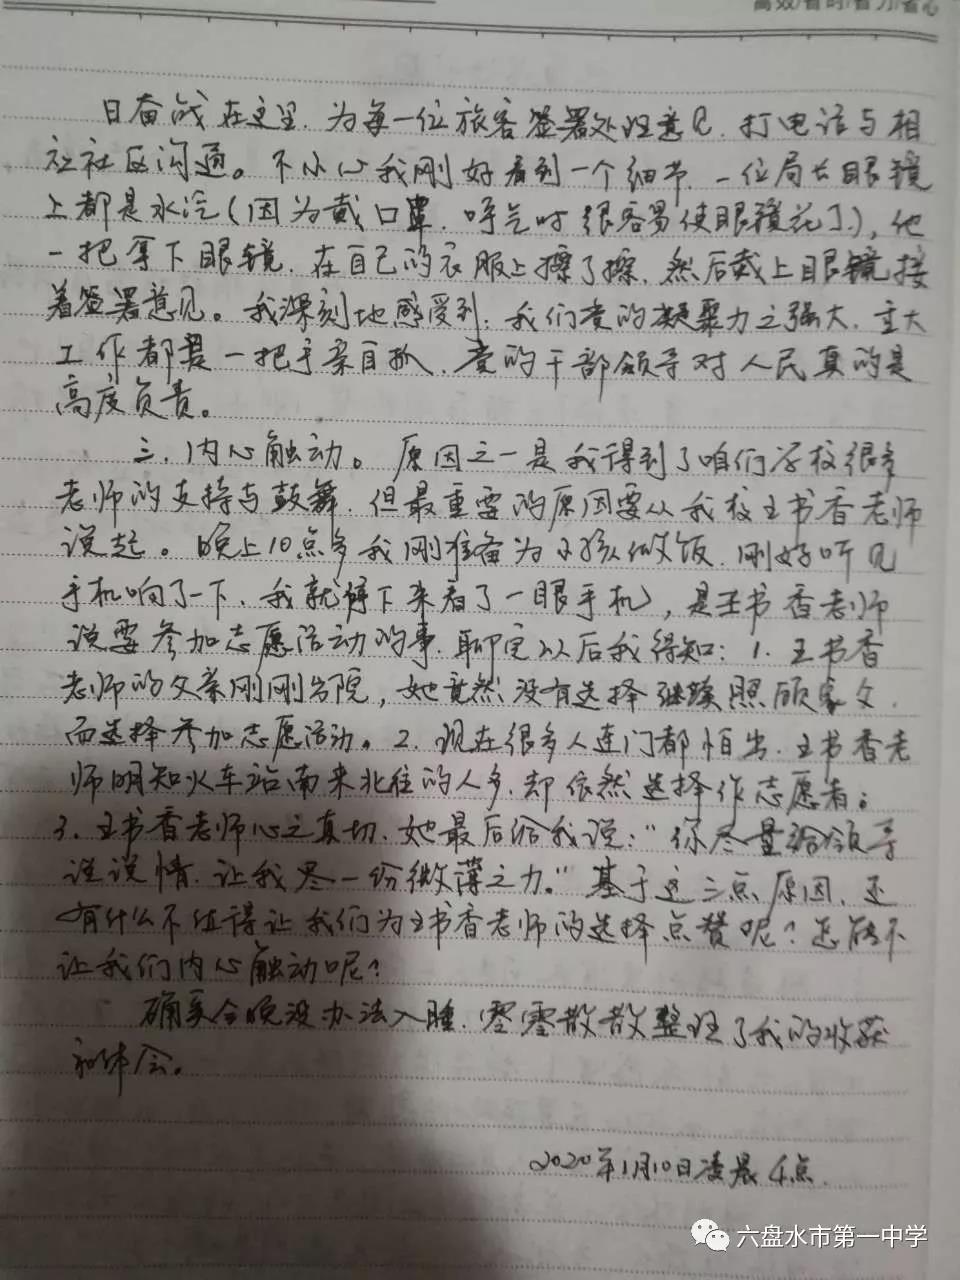 高效/省时/省力/省心
日奋战在这里,为每一位旅客签署处理意见,打电话与相
社社区沟通。不小心我刚好看到一个细节,一位局长眼镜
上都是水汽(因为戴口罩,呼气时很容易使眼镜花了),他
一把拿下眼镜,在自己的衣服上擦了擦,然后戴上眼镜接
着签署意见。我深刻地感受到:我们党的凝聚力之强大,重大
工作都是一把手亲自抓,党的干部领导对人民真的是
高度负责。
三、内心触动。原因之一是我得到了咱们学校很多
老师的支持与鼓舞,但最重要的原因要从我校王书香老师
说起。晚上10点多我刚准备为小孩做饭,刚好听见
手机响了一下,我就停下来看了一眼手机,是王书香老师
说要参加志愿活动的事,聊完以后我得知:1.王书香
老师的父亲刚刚出院,她竟然没有选择继续照顾家父,
而选择参加志愿活动。2.现在很多人连门都怕出,王书香老
师明知火车站南来北往的人多,却依然选择作志愿者;
3.王书香老师心之真切,她最后给我说:“你尽量给领导
说说情,让我尽一份微薄之力。”基于这三点原因,还
有什么不值得让我们为王书香老师的选择点赞呢?怎能不
让我们内心触动呢?
确实今晚没办法入睡,零零散散整理了我的收获
和体会。
2020年1月10日凌晨4点.
六盘水市第一中学